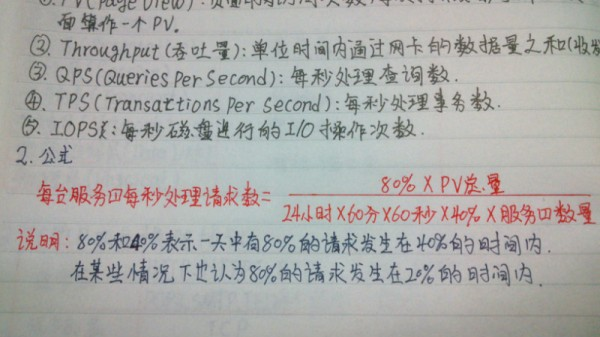 ①. PV(Page View):
面操作一个PV.
②. Throughput(吞吐量):单位时间内通过网卡的数据量之和(收发
③. QPS(Queries Per Second):每秒处理查询数.
④. TPS(Transactions Per Second):每秒处理事务数.
⑤. IOPS:每秒磁盘进行的I/O操作次数.
2. 公式
每台服务口每秒处理请求数= 80% × PV总量
24小时×60分×60秒×40%×服务口数量
说明: 80%和40%表示一天中有80%的请求发生在40%的时间内.
在某些情况下也认为80%的请求发生在20%的时间内.